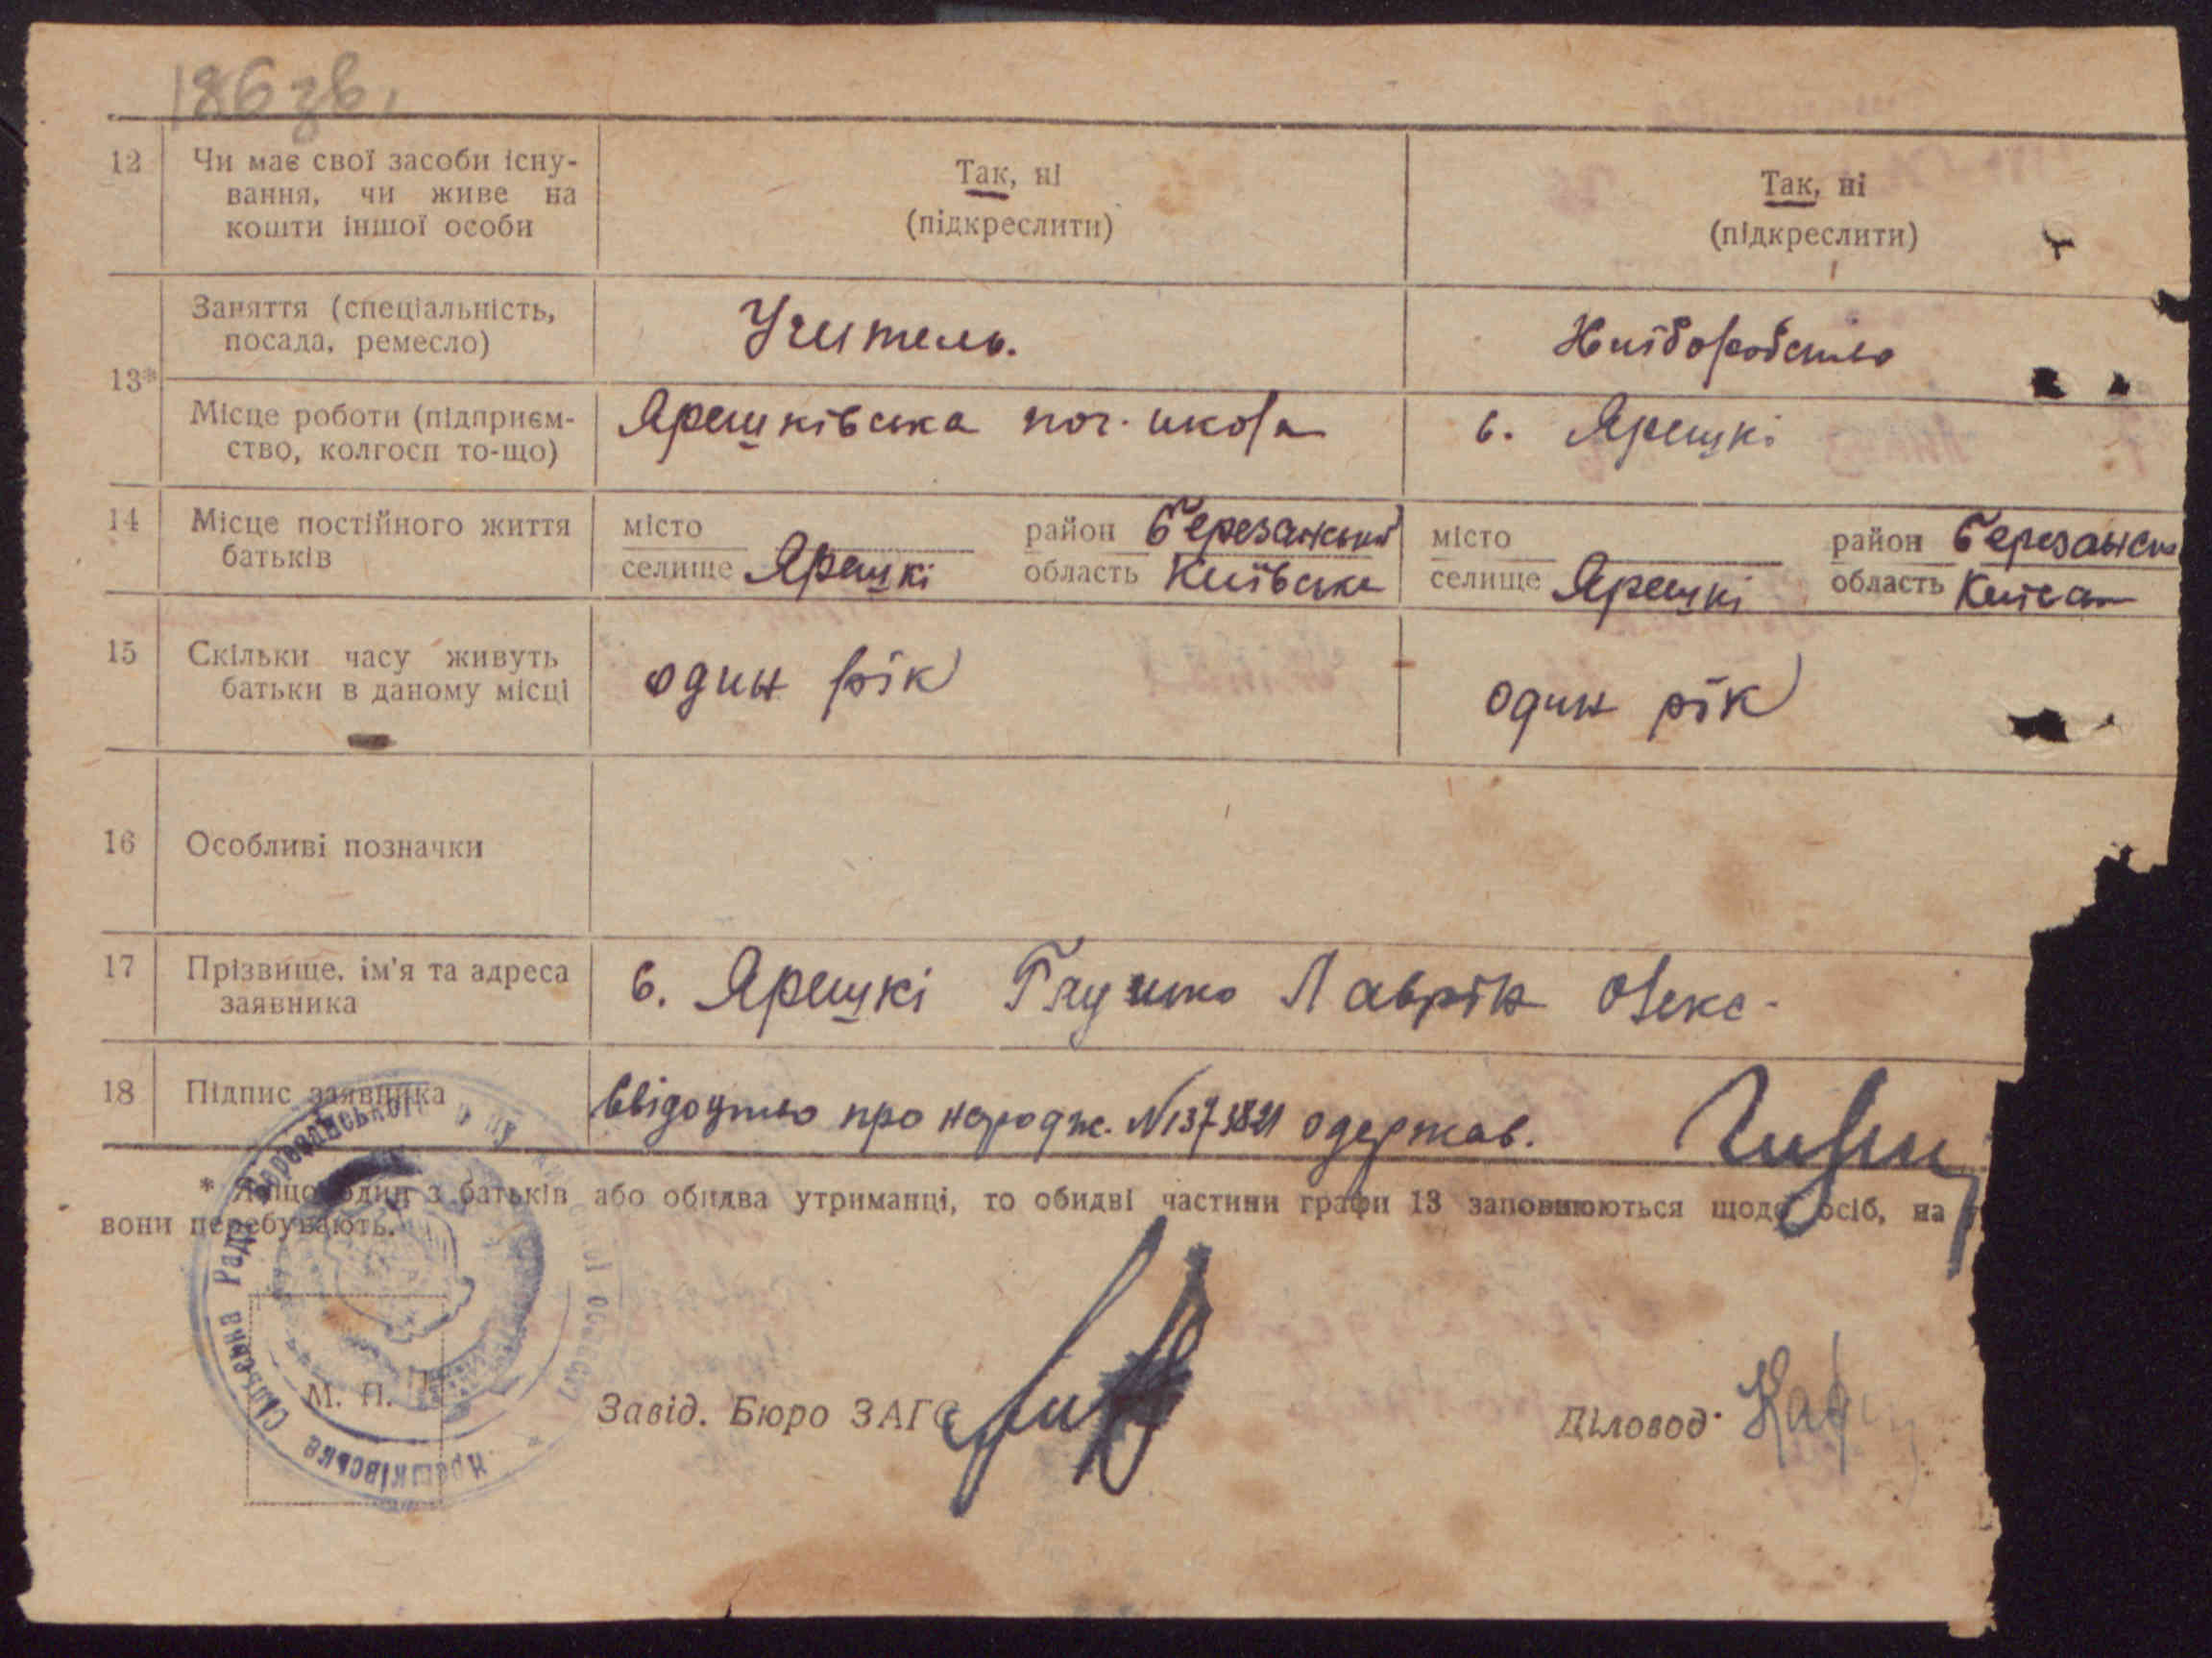 186 зв.
12 Чи має свої засоби існу-
вання, чи живе на
кошти іншої особи
Так, ні
(підкреслити)
Так, ні
(підкреслити)
13*
Заняття (спеціальність,
посада, ремесло)
Учитель.
Хліборобство
Місце роботи (підприєм-
ство, колгосп то-що)
Ярешківська поч. школа
с. Ярешкі
14 Місце постійного життя
батьків
місто
селище Ярешкі
район Березанський
область Київська
місто
селище Ярешкі
район Березанськ
область
15 Скільки часу живуть
батьки в даному місці
один рік
один рік
16 Особливі позначки
17 Прізвище, ім'я та адреса
заявника
с. Ярешкі Глушко Лаврін Олекс.
18 Підпис заявника
Свідоцтво про народж. N 1373821 одержав.
* Якщо один з батьків або обидва утриманці, то обидві частини графи 13 заповнюються щодо осіб, на
вони перебувають.
Ярешківська Сільська Рада Березанського
М. П.
Завід. Бюро ЗАГС
Діловод